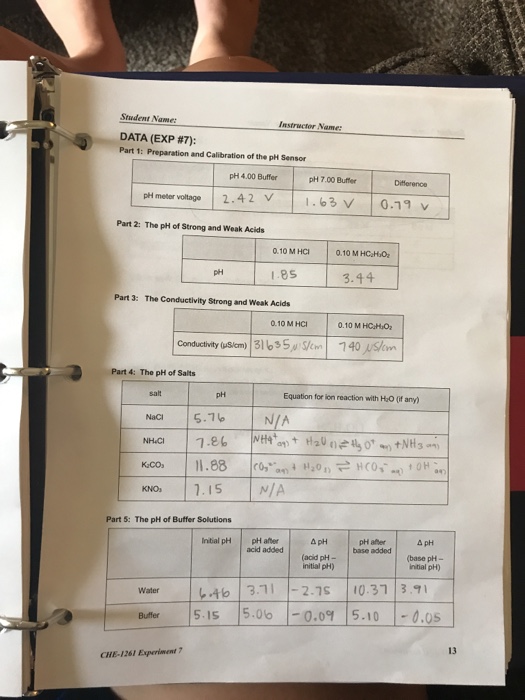 Student Name: Instructor Name:
DATA (EXP #7):
Part 1: Preparation and Calibration of the pH Sensor
pH 4.00 Buffer pH 7.00 Buffer Difference
pH meter voltage 2.42 V 1.63 V 0.79 V
Part 2: The pH of Strong and Weak Acids
0.10 M HCl 0.10 M HC₂H₃O₂
pH 1.85 3.44
Part 3: The Conductivity Strong and Weak Acids
0.10 M HCl 0.10 M HC₂H₃O₂
Conductivity (uS/cm) 31635 µS/cm 740 µS/cm
Part 4: The pH of Salts
salt pH Equation for ion reaction with H₂O (if any)
NaCl 5.76 N/A
NH₄Cl 7.86 NH4⁺(aq) + H₂O(l) ⇌ H₃O⁺(aq) + NH₃(aq)
K₂CO₃ 11.88 CO₃²⁻(aq) + H₂O(l) ⇌ HCO₃⁻(aq) + OH⁻(aq)
KNO₃ 7.15 N/A
Part 5: The pH of Buffer Solutions
Initial pH pH after Δ pH pH after Δ pH
acid added (acid pH – base added (base pH –
initial pH) initial pH)
Water 6.46 3.71 -2.75 10.37 3.91
Buffer 5.15 5.06 -0.09 5.10 -0.05
CHE-1261 Experiment 7 13